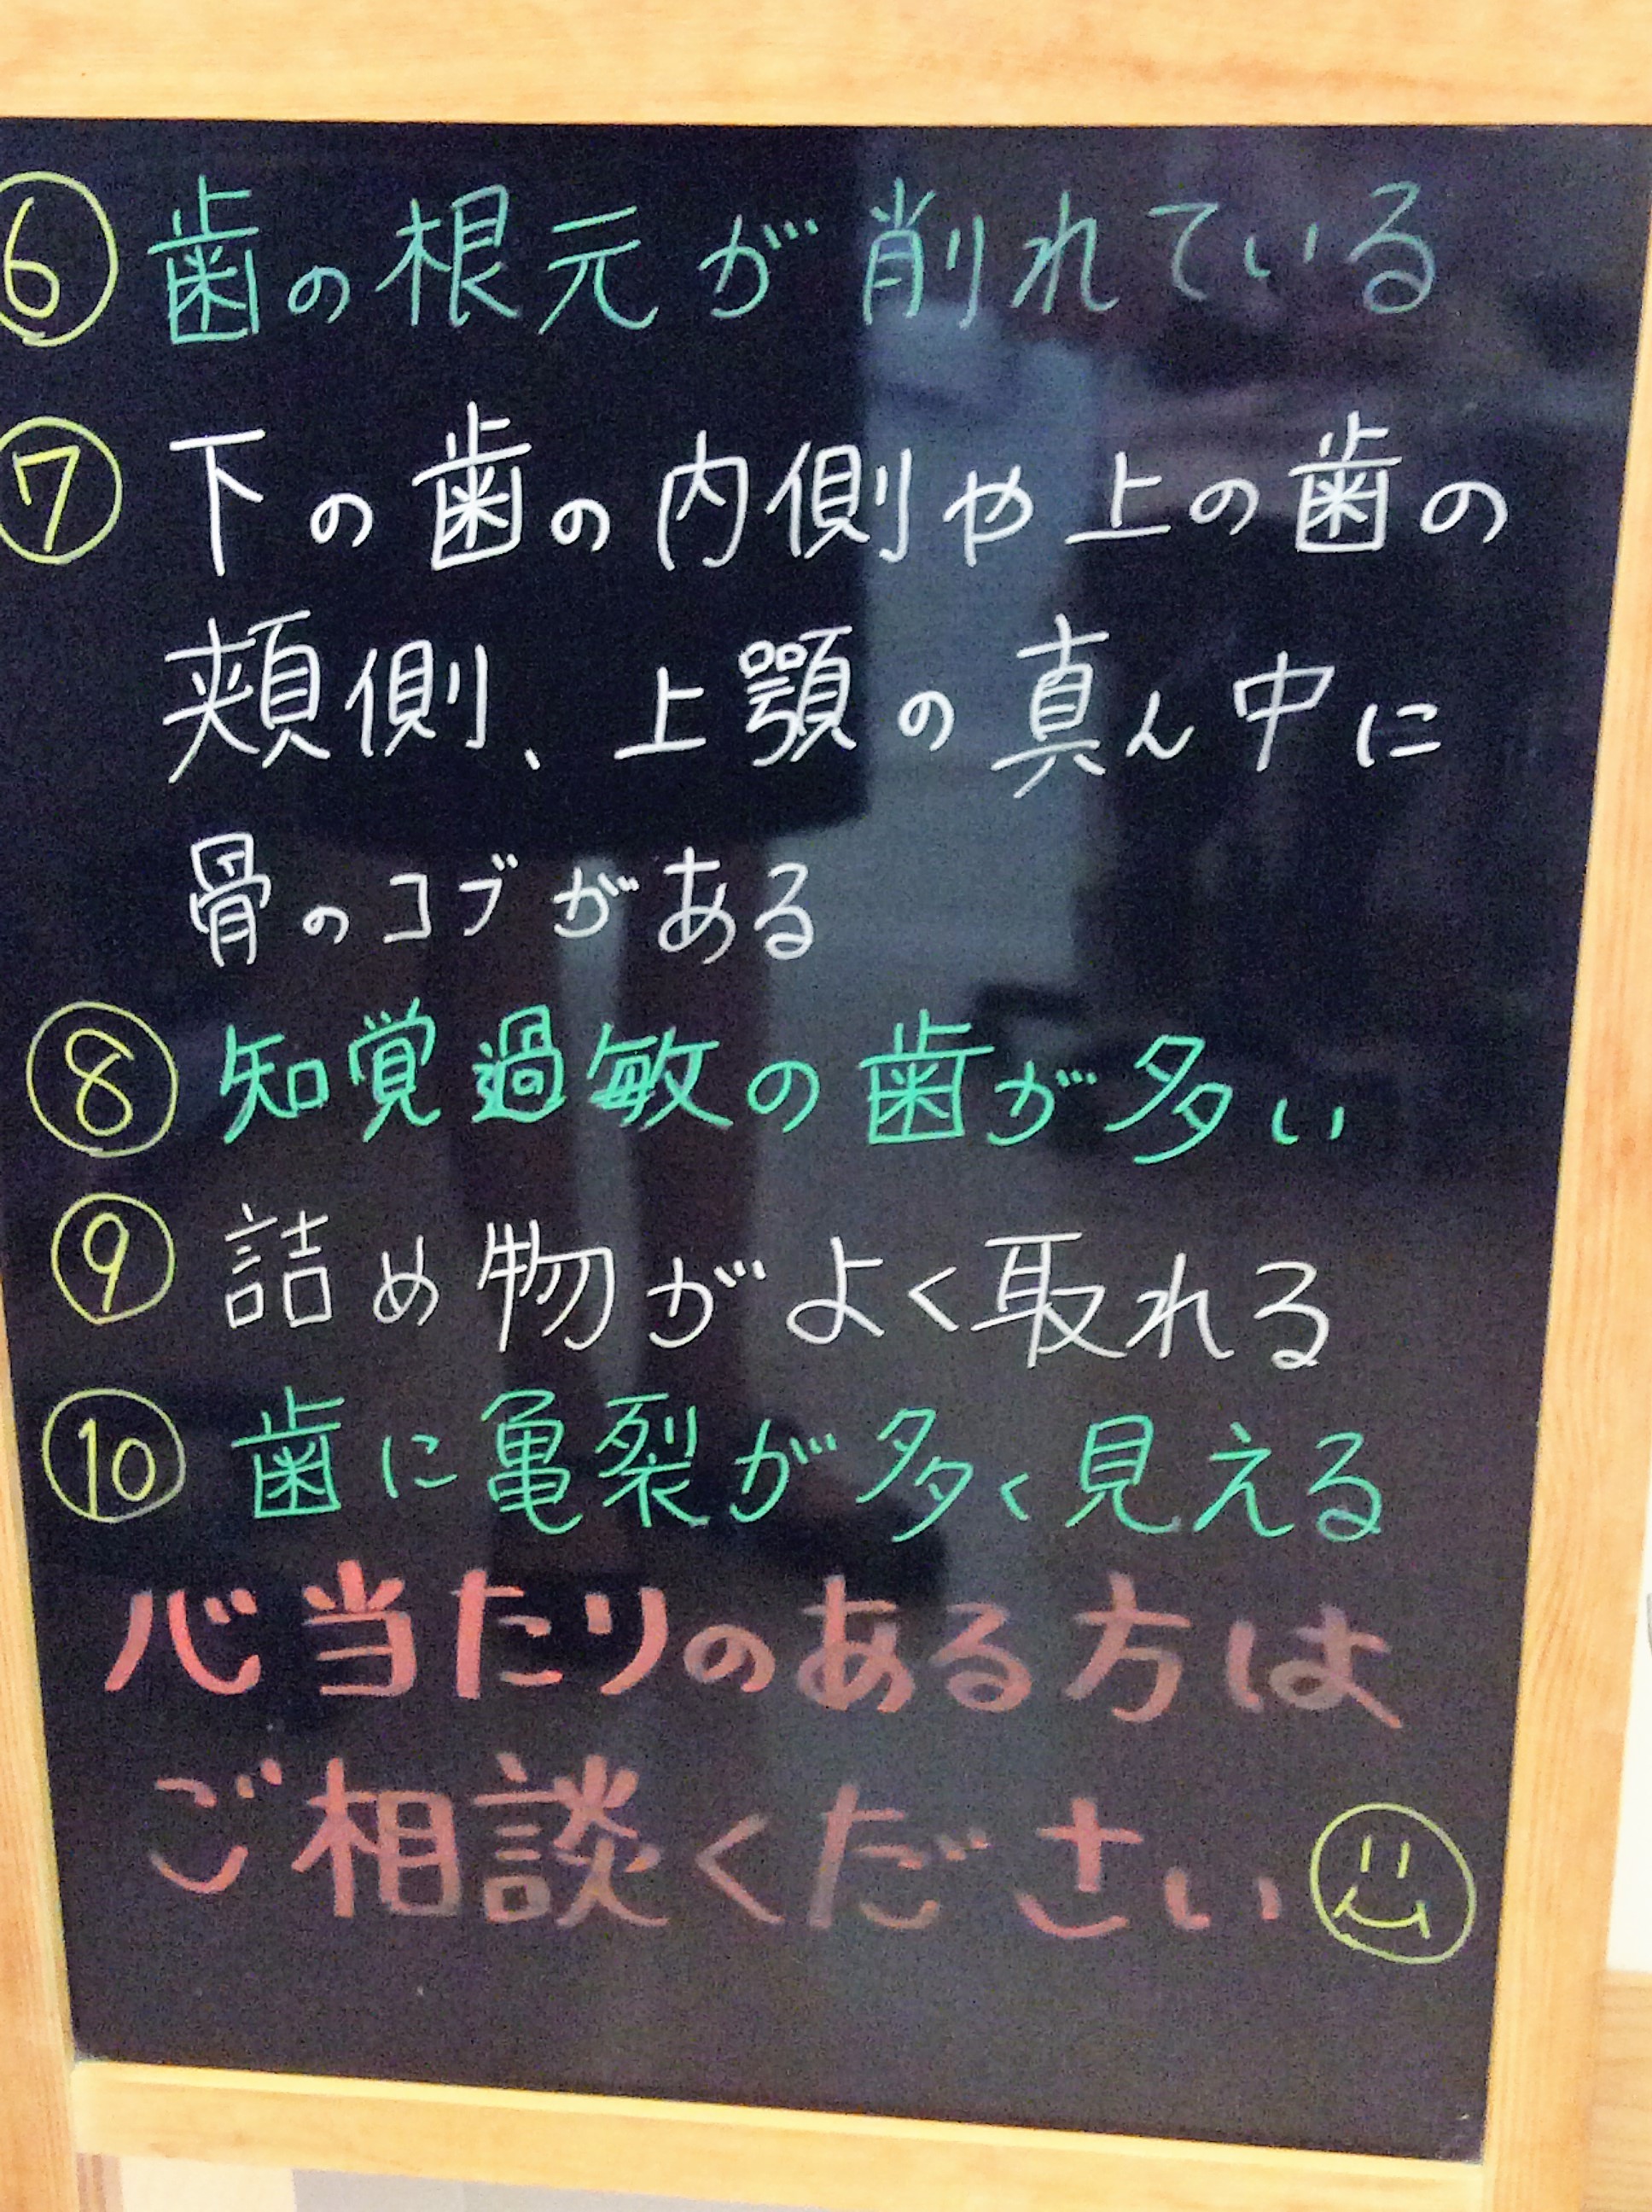 ⑥ 歯の根元が削れている
⑦ 下の歯の内側や上の歯の
頬側、上顎の真ん中に
骨のコブがある
⑧ 知覚過敏の歯が多い
⑨ 詰め物がよく取れる
⑩ 歯に亀裂が多く見える
心当たりのある方は
ご相談ください